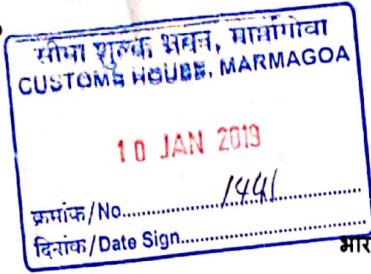 सीमा शुल्क भवन, मार्मागोवा
CUSTOMS HOUSE, MARMAGOA
10 JAN 2019
क्रमांक/No..........1441
दिनांक/Date Sign..........
भार